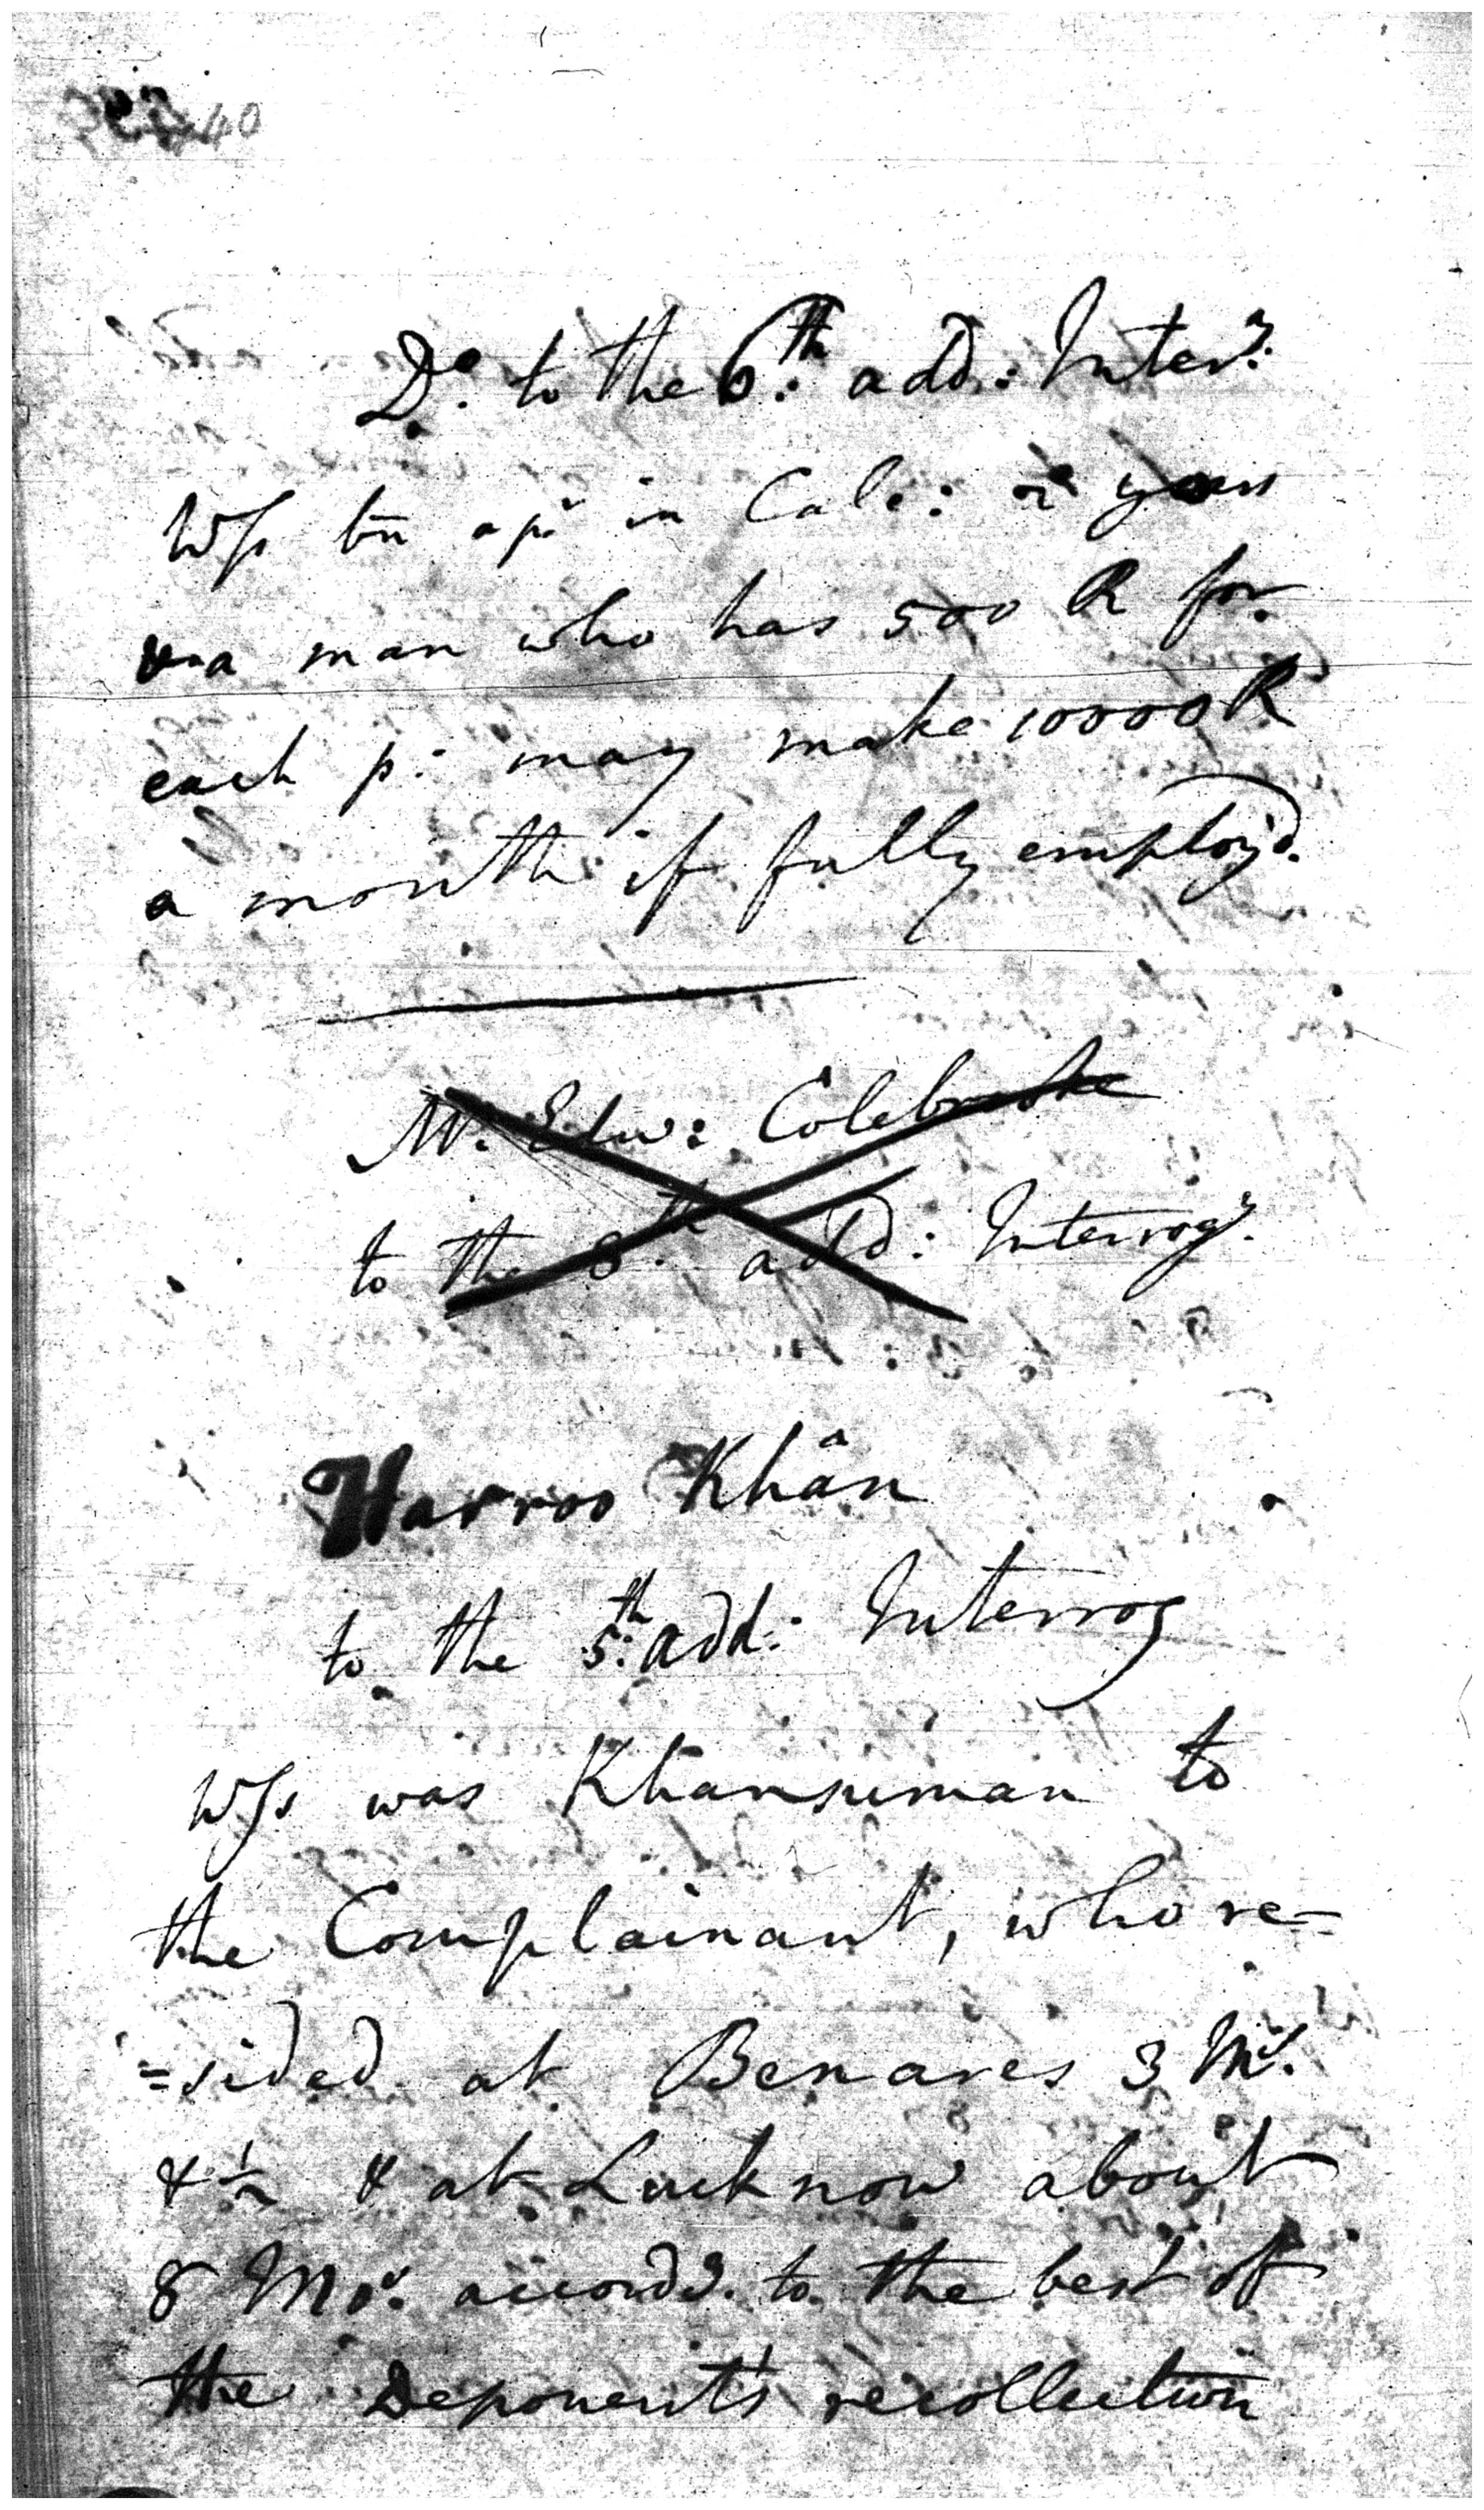 40
Do. to the 6:th add: Intery.
Ws bn a pr in Calc: 2 years
& a man who has 500 R for
each p: may make 10000 R
a month if fully employ'd.
Mr. Edw: Colebrooke
to the 8:th add: Interrogy.
Harroo Khân
to the 5:th add: Interrog
Ws was Khansuman to
the Complainant, who re=
=sided at Benares 3 Ms.
& ½ & at Lucknow about
8 Mos. accordg. to the best of
the Deponent's recollection